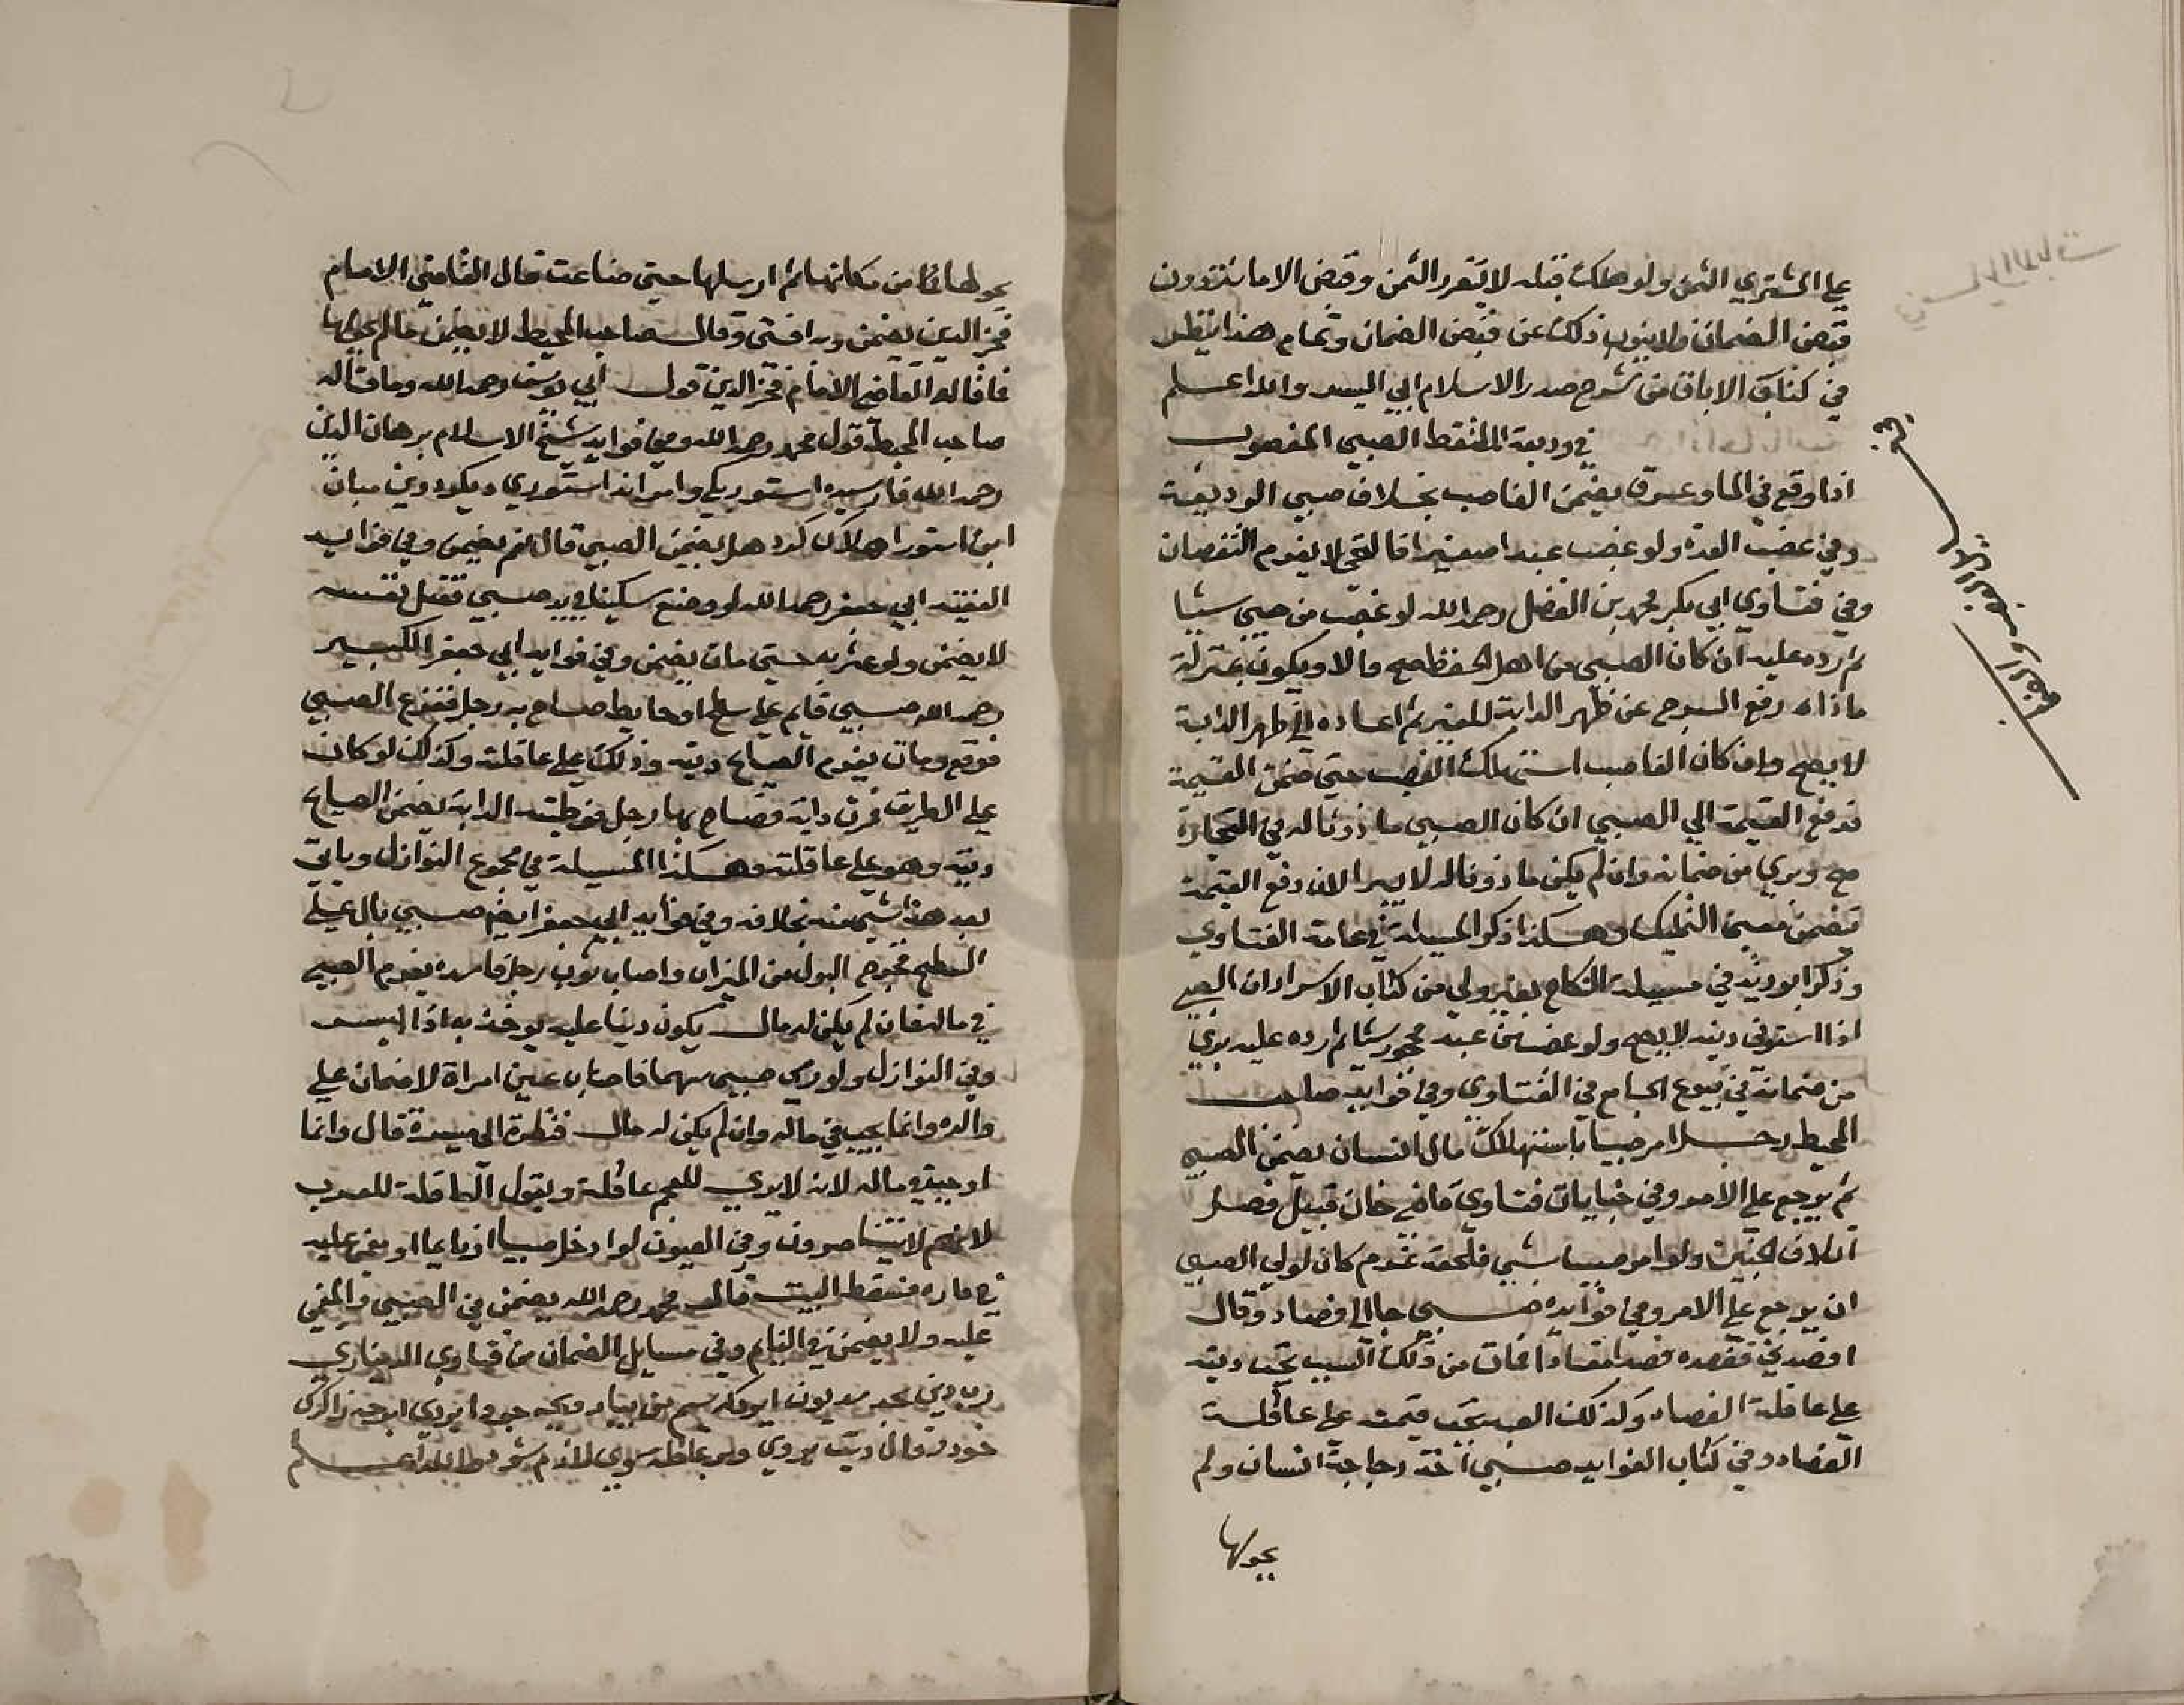 على المشتري الثمن ولو هلك قبله لا يتقرر الثمن وقبض الامانة دون
قبض الضمان ولا ينوب ذلك عن قبض الضمان وتمام هذا ينظر
في كتاب الاباق من شرح صدر الاسلام ابي اليسر والله اعلم
في وديعة الملتقط الصبي المغصوب
اذا وقع في الماء وغرق يضمن الغاصب بخلاف صبي الوديعة
وفي غصب العدة ولو غصب عبدا صغيرا لا يغرم النقصان
وفي فتاوي ابي بكر محمد بن الفضل رحمه الله لو غصب من صبي شيئا
ثم رده عليه ان كان الصبي من اهل الحفظ صح والا لا ويكون بمنزلة
ما اذا رفع السرج عن ظهر الدابة للغير ثم اعاده الى ظهر الدابة
لا يصح وان كان الغاصب استهلك الغصب حتى ضمن القيمة
فدفع القيمة الي الصبي ان كان الصبي ماذونا له في التجارة
صح وبري من ضمانه وان لم يكن ماذونا له لا يبرا لان دفع القيمة
يتضمن معنى التمليك وهكذا ذكر المسيلة في عامة الفتاوي
وذكر ابو زيد في مسيلة النكاح بغير ولي من كتاب الاسرار ان الصبي
اذا استوفى دينه لا يصح ولو غصب من عبد محجور شيا ثم رده عليه بري
من ضمانه في بيوع الجامع في الفتاوي وفي فوايد صاحب
المحيط رجل امر صبيا باستهلاك مال انسان يضمن الصبي
ثم يرجع على الامر وفي جنايات فتاوي قاضي خان قبيل فصل
اتلاف الجنين ولو امر صبيا بشي فلحقه غرم كان لولي الصبي
ان يرجع على الامر وفي فوايده صبي جا الى فصاد وقال
افصدني ففصده فصدا معتادا فمات من ذلك السبب تجب ديته
على عاقلة الفصاد وكذلك العبد تجب قيمته على عاقلة
الفصاد وفي كتاب الفوايد صبي اخذ دجاجة انسان ولم
يحولها
يحولها من مكانها ثم ارسلها حتى ضاعت قال القاضي الامام
فخر الدين يضمن وبه افتى وقال صاحب المحيط لا يضمن ما لم يحولها
فما قاله القاضي الامام فخر الدين قول ابي يوسف رحمه الله وما قاله
صاحب المحيط قول محمد رحمه الله وفي فوايد شيخ الاسلام برهان الدين
رحمه الله
هل يضمن الصبي قال نعم يضمن وفي فوايد
الفقيه ابي جعفر رحمه الله لو وضع سكينا في يد صبي فقتل نفسه
لا يضمن ولو عثر به حتى مات يضمن وفي فوايد ابي جعفر الكبير
رحمه الله صبي قايم على سطح او حايط صاح به رجل ففزع الصبي
فوقع ومات يغرم الصايح ديته وذلك على عاقلته وكذلك لو كان
على الطريق فمرت دابة فصاح بها رجل فوطيته الدابة يضمن الصايح
ديته وهو على عاقلته وهكذا المسيلة في مجموع النوازل وياتي
بعد هذا بخلافه وفي فوايد ابي جعفر ايضا صبي بال على
السطح فخرج البول من الميزاب واصاب ثوب رجل فافسده يغرم الصبي
في ماله فان لم يكن له مال يكون دينا عليه يوخذ به اذا ايسر
وفي النوازل ولو رمى صبي سهما فاصاب عين امراة لا ضمان على
والده وانما يجب في ماله وان لم يكن له مال فنظرة الى ميسرة قال وانما
اوجبه في ماله لانه لا يرى للعجم عاقلة ويقول العاقلة للعرب
لانهم لا يتناصرون وفي العيون لو ادخل صبيا او نايما او مغمى عليه
في داره فسقط البيت قال محمد رحمه الله يضمن في الصبي والمغمى
عليه ولا يضمن في النايم وفي مسايل الضمان من فتاوي الديناري